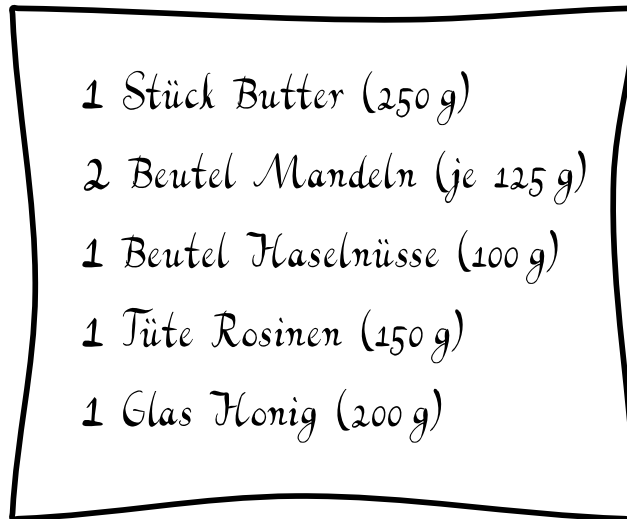 1 Stück Butter (250 g)
2 Beutel Mandeln (je 125 g)
1 Beutel Haselnüsse (100 g)
1 Tüte Rosinen (150 g)
1 Glas Honig (200 g)